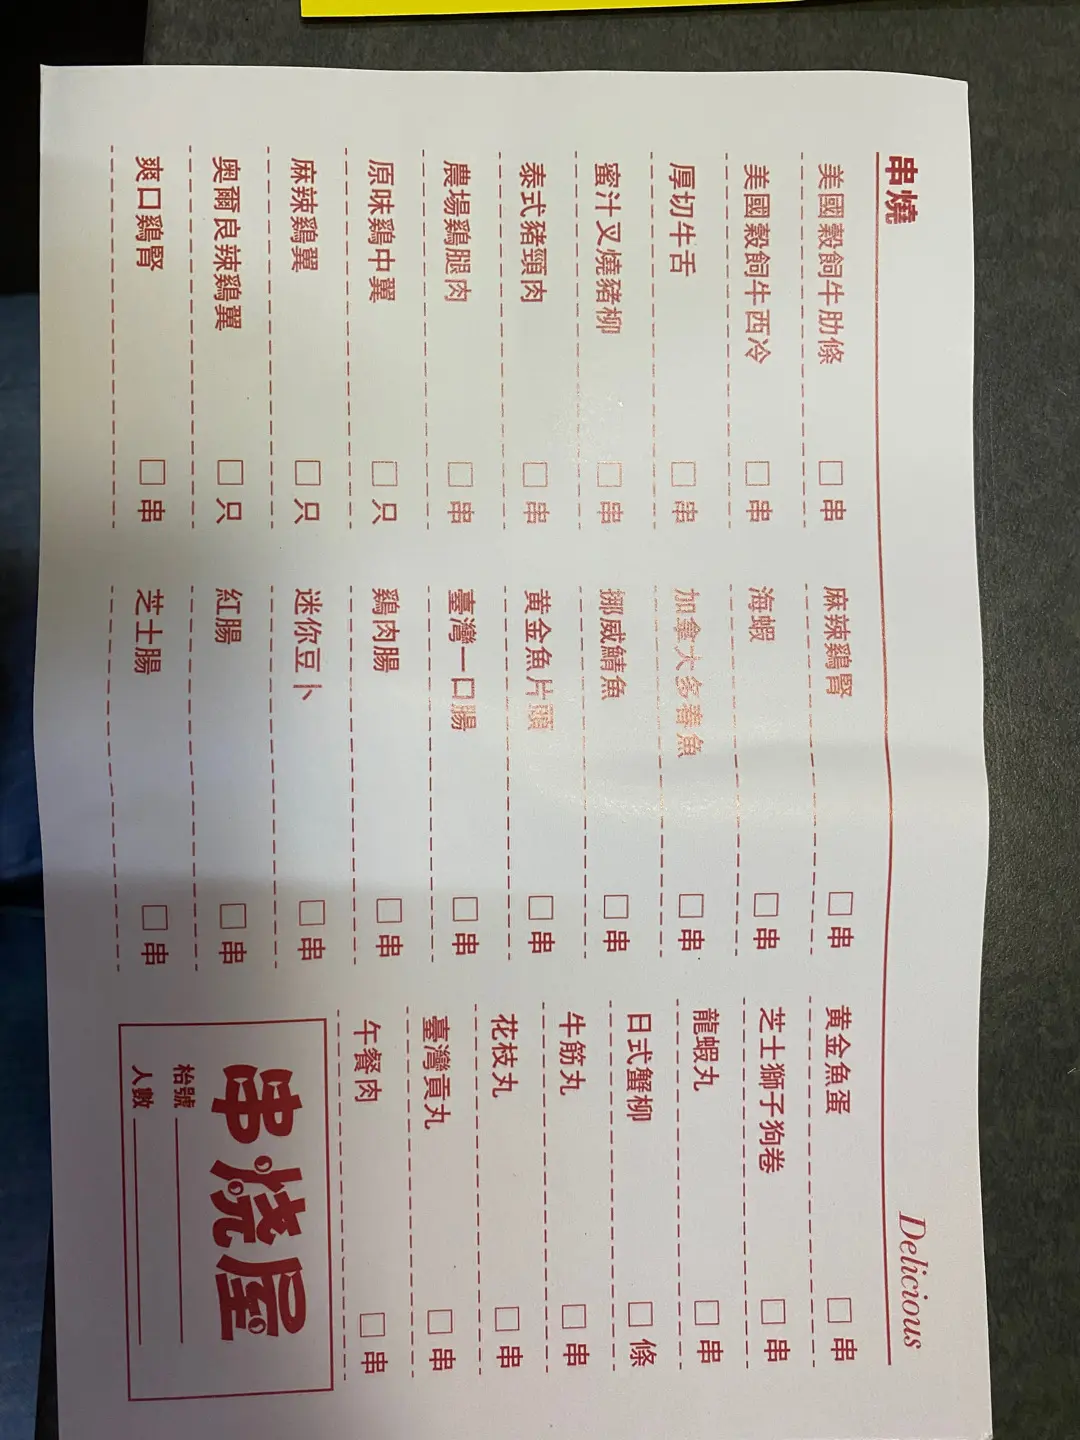 串燒
Delicious
美國穀飼牛肋條 □ 串
美國穀飼牛西冷 □ 串
厚切牛舌 □ 串
蜜汁叉燒豬柳 □ 串
泰式豬頸肉 □ 串
農場鷄腿肉 □ 串
原味鷄中翼 □ 只
麻辣鷄翼 □ 只
奥爾良辣鷄翼 □ 只
爽口鷄腎 □ 串
麻辣鷄腎 □ 串
海蝦 □ 串
加拿大多春魚 □ 串
挪威鯖魚 □ 串
黄金魚片頭 □ 串
臺灣一口腸 □ 串
鷄肉腸 □ 串
迷你豆卜 □ 串
紅腸 □ 串
芝士腸 □ 串
黄金魚蛋 □ 串
芝士獅子狗卷 □ 串
龍蝦丸 □ 串
日式蟹柳 □ 條
牛筋丸 □ 串
花枝丸 □ 串
臺灣貢丸 □ 串
午餐肉 □ 串
串烧屋
枱號
人數